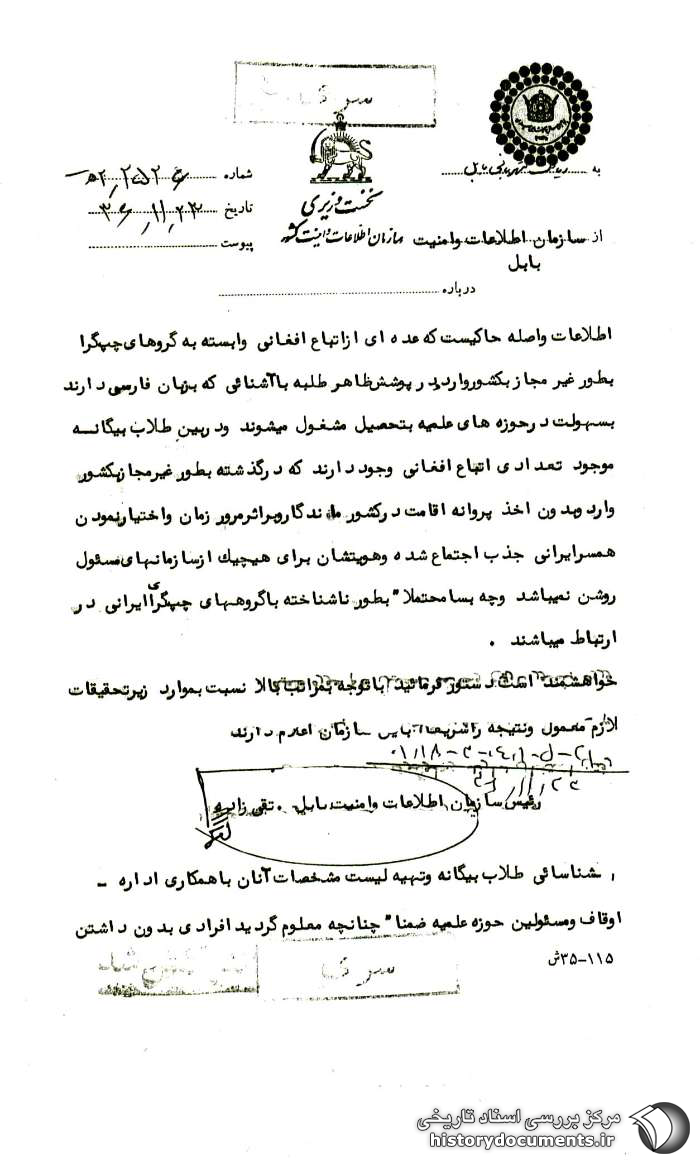 سری
به ریاست شهربانی بابل
شماره
تاریخ ۳۶/۱۱/۲۳
پیوست
نخست وزیری
سازمان اطلاعات و امنیت کشور
از سازمان اطلاعات وامنیت
بابل
درباره
اطلاعات واصله حاکیست که عده ای ازاتباع افغانی وابسته به گروهای چپگرا
بطور غیر مجاز بکشوروارد در پوشش ظاهر طلبه باآشنائی که بزبان فارسی دارند
بسهولت درحوزه های علمیه بتحصیل مشغول میشوند ودربین طلاب بیگانه
موجود تعدادی اتباع افغانی وجود دارند که درگذشته بطور غیرمجازبکشور
وارد وبدون اخذ پروانه اقامت درکشور ماندگاروبراثرمرور زمان واختیارنمودن
همسرایرانی جذب اجتماع شده وهویتشان برای هیچیك ازسازمانهای مسئول
روشن نمیباشد وچه بسامحتملا" بطور ناشناخته باگروههای چپگرای ایرانی در
ارتباط میباشند .
خواهشمند است دستور فرمائید باتوجه بمراتب بالا نسبت بموارد زیرتحقیقات
لازم معمول ونتیجه راسریعا" باین سازمان اعلام دارند
رئیس سازمان اطلاعات وامنیت بابل . تقی زاده
۱ شناسائی طلاب بیگانه وتهیه لیست مشخصات آنان باهمکاری اداره -
اوقاف ومسئولین حوزه علمیه ضمنا" چنانچه معلوم گردید افرادی بدون داشتن
۱۱۵-۳۵ش
سری
مرکز بررسی اسناد تاریخی
historydocuments.ir